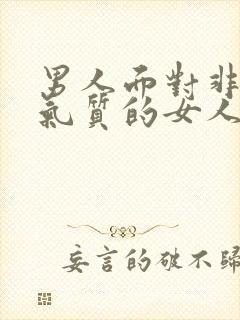 男人而對非
氣质的女人
妄言的破不歸